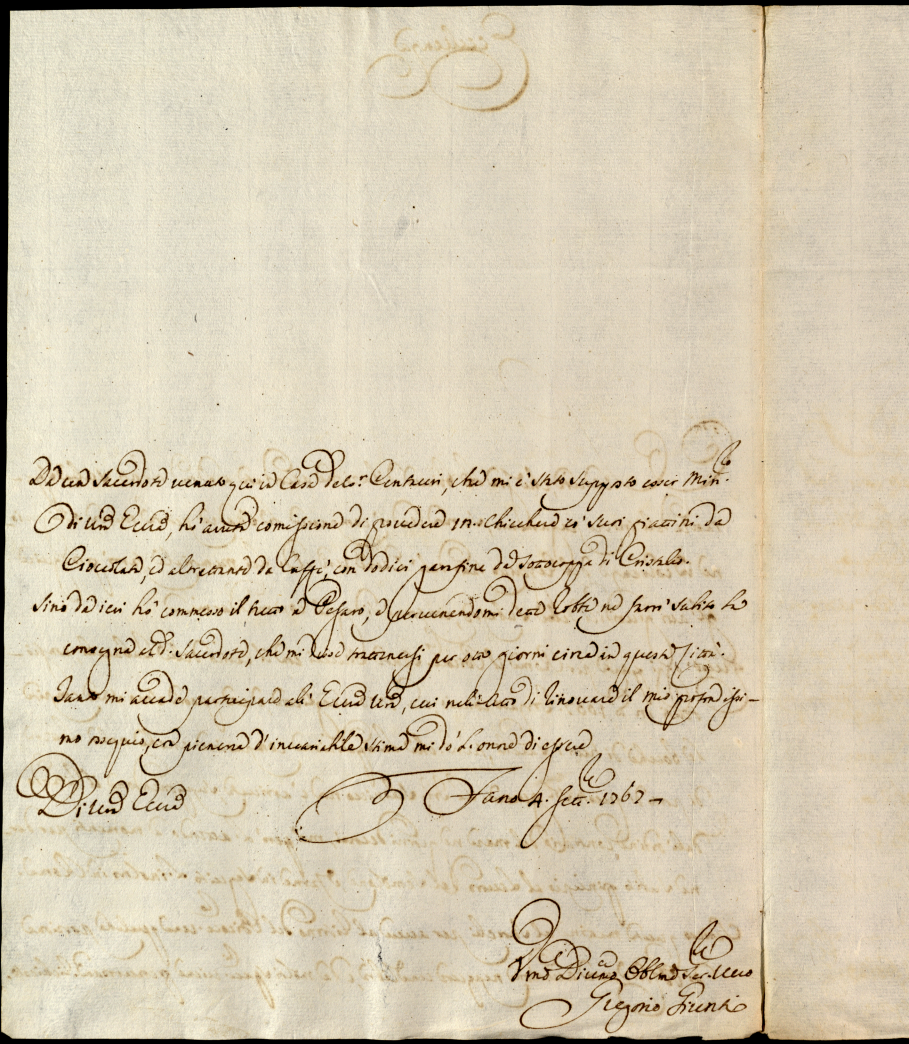 Da un Sacerdote venuto qui in Casa del Sr. Centuri, che mi è stato supposto esser Minro.
di Vra Ecca, hò avuta comissione di provedere no. chicchere co' suoi piattini da
Cioccolata, ed altrettante da Caffè, con dodici garafine e Sottocoppe di Cristallo.
Sino da ieri hò commesso il tutto a Pesaro, e pervenendomi dette robbe ne farò subito la
consegna al do. Sacerdote, che mi disse trattenersi per otto giorni circa in questa Città.
Tanto mi accade partecipare all' Ecca Vra, cui nell'atto di rinovare il mio profondissi-
mo ossequio, con pienezza d'invariabile stima mi dò l'onore di essere
Di Vra Ecca Fano 4. Sette. 1767
Vmo Divmo Oblmo Ser.re Vero
Gregorio Giunti